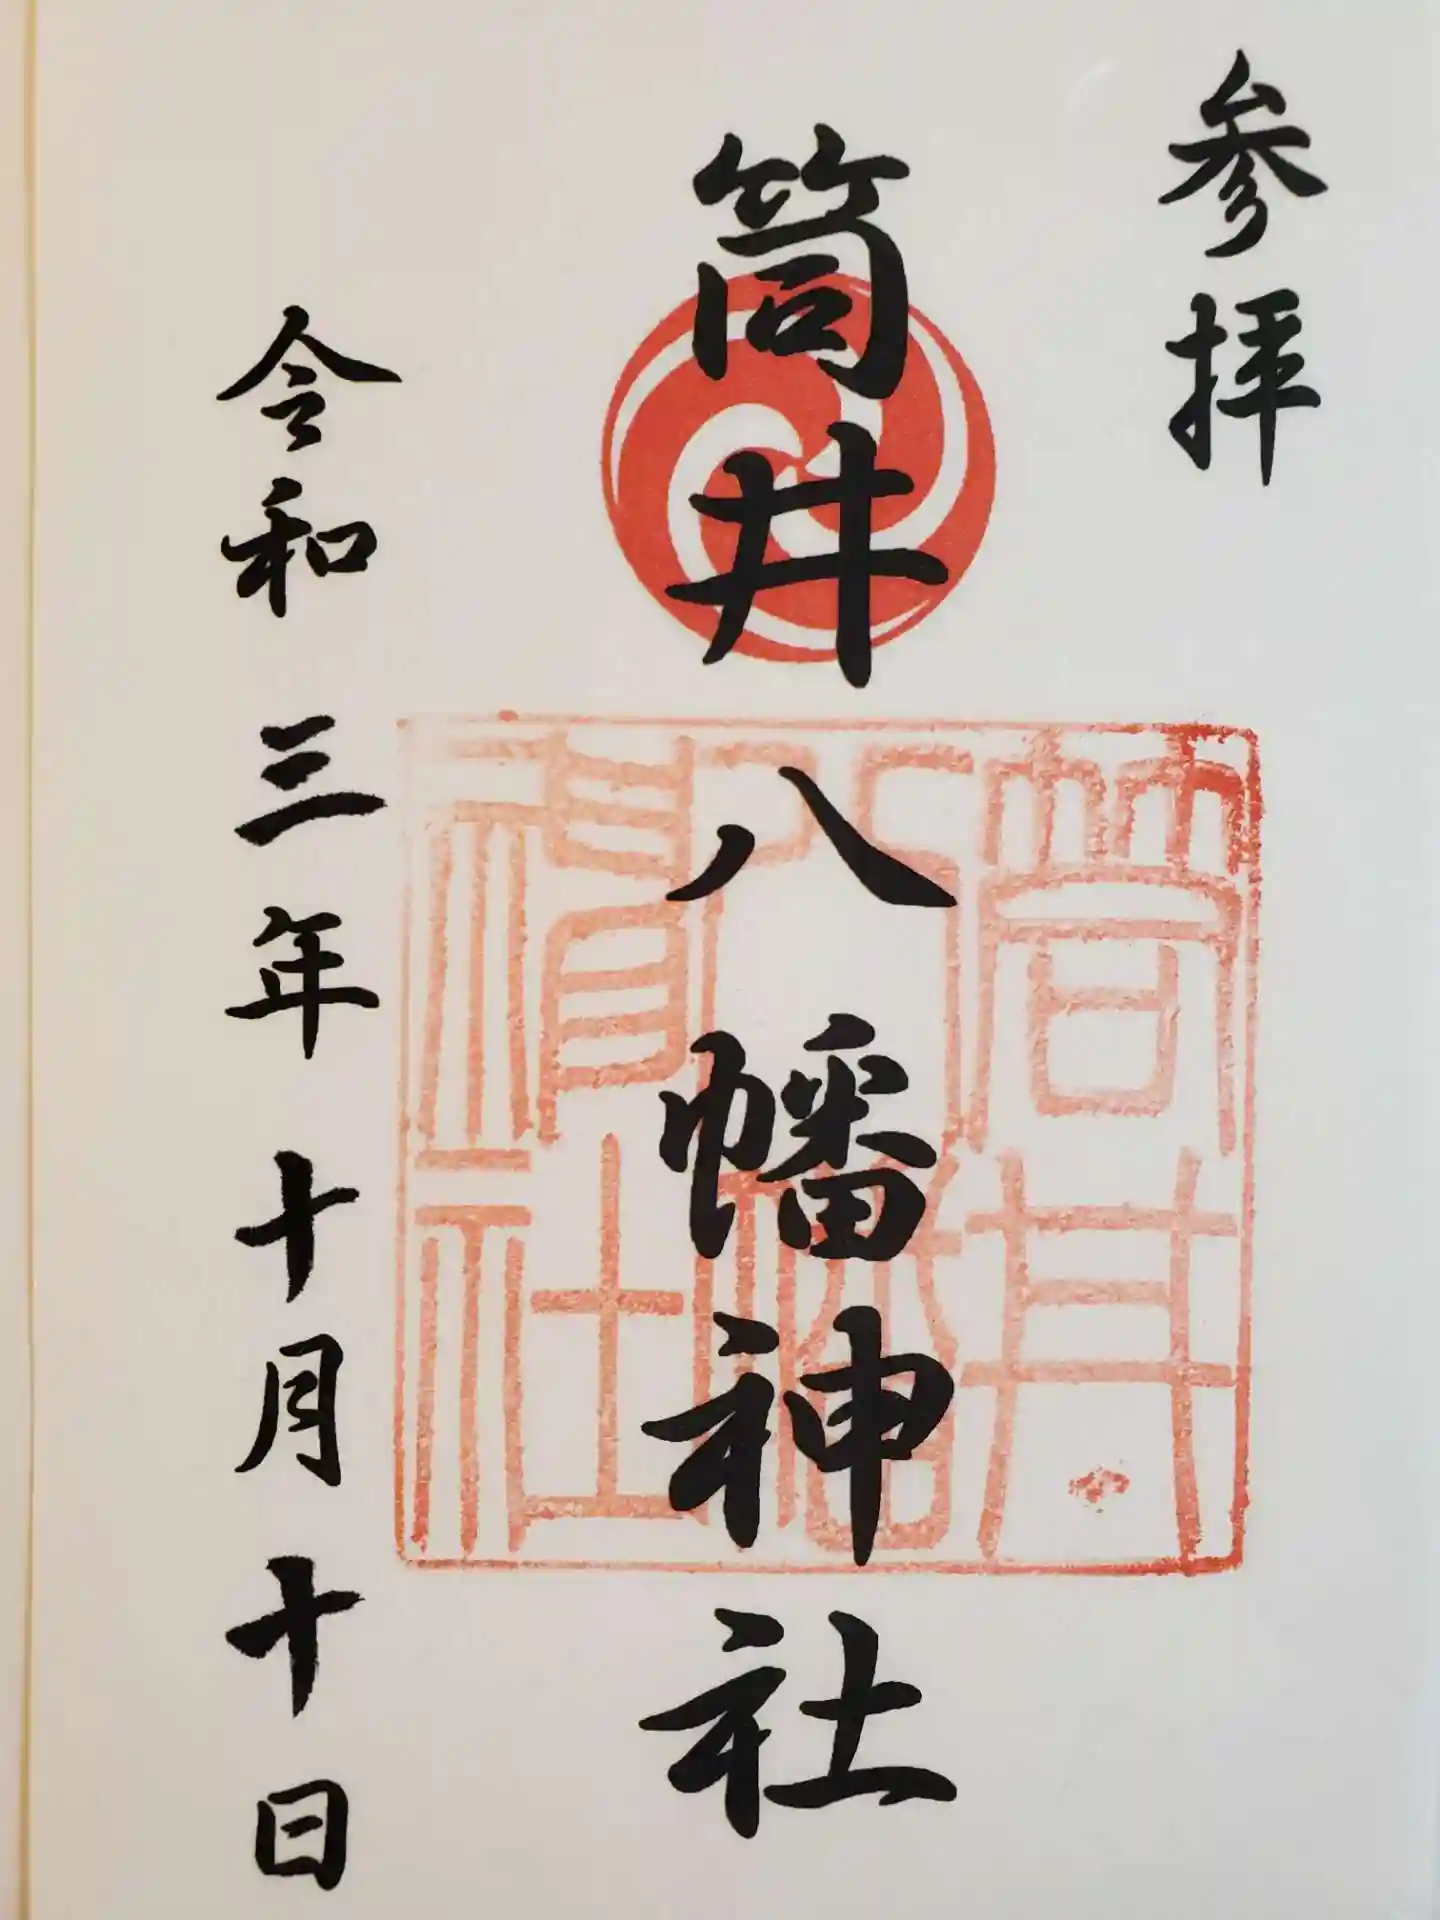 参拝
筒井八幡神社
令和三年十月十日
筒井
八幡
神社